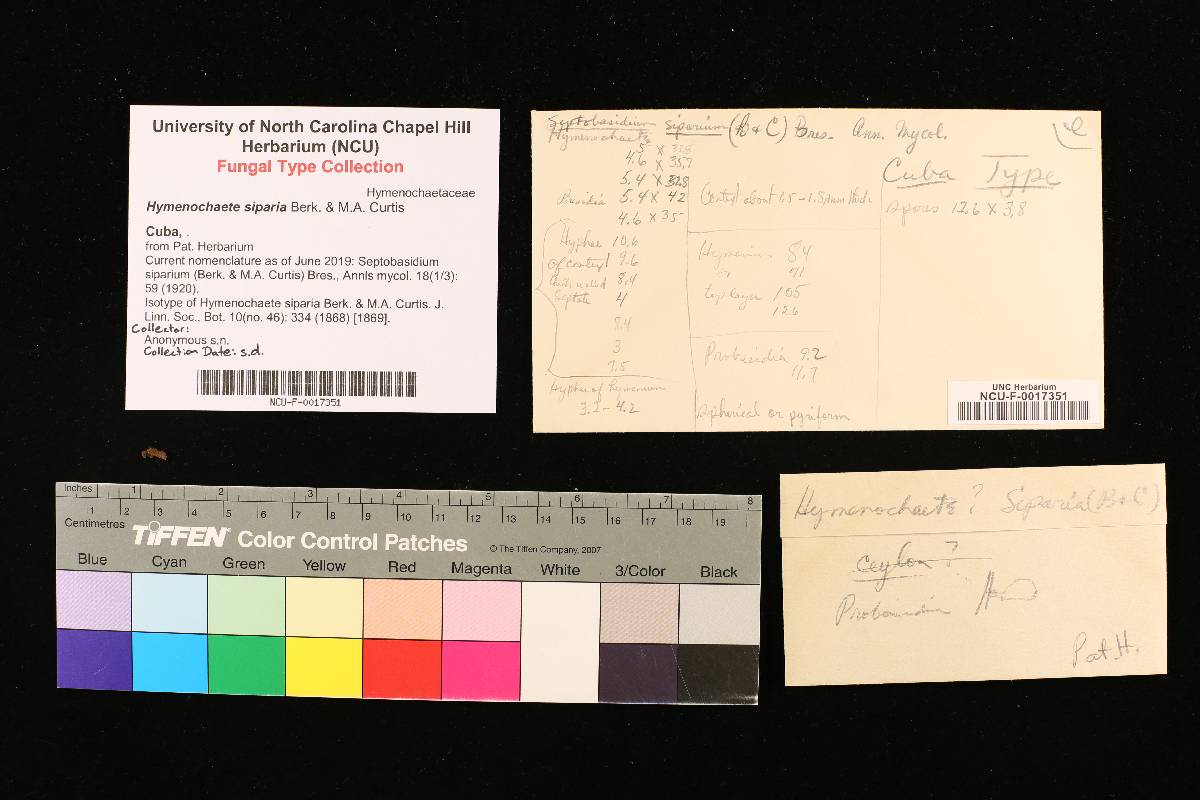 University of North Carolina Chapel Hill
Herbarium (NCU)
Fungal Type Collection
Hymenochaetaceae
Hymenochaete siparia Berk. & M.A. Curtis
Cuba, .
from Pat. Herbarium
Current nomenclature as of June 2019: Septobasidium
siparium (Berk. & M.A. Curtis) Bres., Annls mycol. 18(1/3):
59 (1920).
Isotype of Hymenochaete siparia Berk. & M.A. Curtis. J.
Linn. Soc., Bot. 10(no. 46): 334 (1868) [1869].
Collector:
Anonymous s.n.
Collection Date: s.d.
NCU-F-0017351
Septobasidium siparium (B & C) Bres. Ann. Mycol.
Hymenochaete
5 x 328
4.6 x 35.7
5.4 x 328
Basidia 5.4 x 42
4.6 x 35
Hyphae 10.6
of context 9.6
thick walled 8.4
Septate 4
8.4
3
7.5
Hyphae of Hymenium
3.2 - 4.2
Context about 1.5 - 1.8 mm thick
Hymenium 84
or 71
top layer 105
126
Probasidia 9.2
11.7
Spherical or pyriform
Cuba Type
Spores 12.6 x 3.8
UNC Herbarium
NCU-F-0017351
Inches 1 2 3 4 5 6 7 8
1 2 3 4 5 6 7 8 9 10 11 12 13 14 15 16 17 18 19
Centimetres
TIFFEN Color Control Patches
© The Tiffen Company, 2007
Blue Cyan Green Yellow Red Magenta White 3/Color Black
Hymenochaete ? Siparia (B & C)
Ceylon ?
Pat. H.